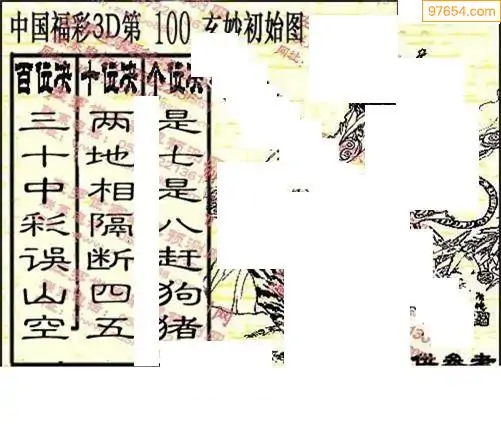 97654.com
中国福彩3D第 100 玄妙初始图
百位决 十位决 个位决
三十中彩误山空
两地相隔断四五
是七是八赶狗猪
供参考